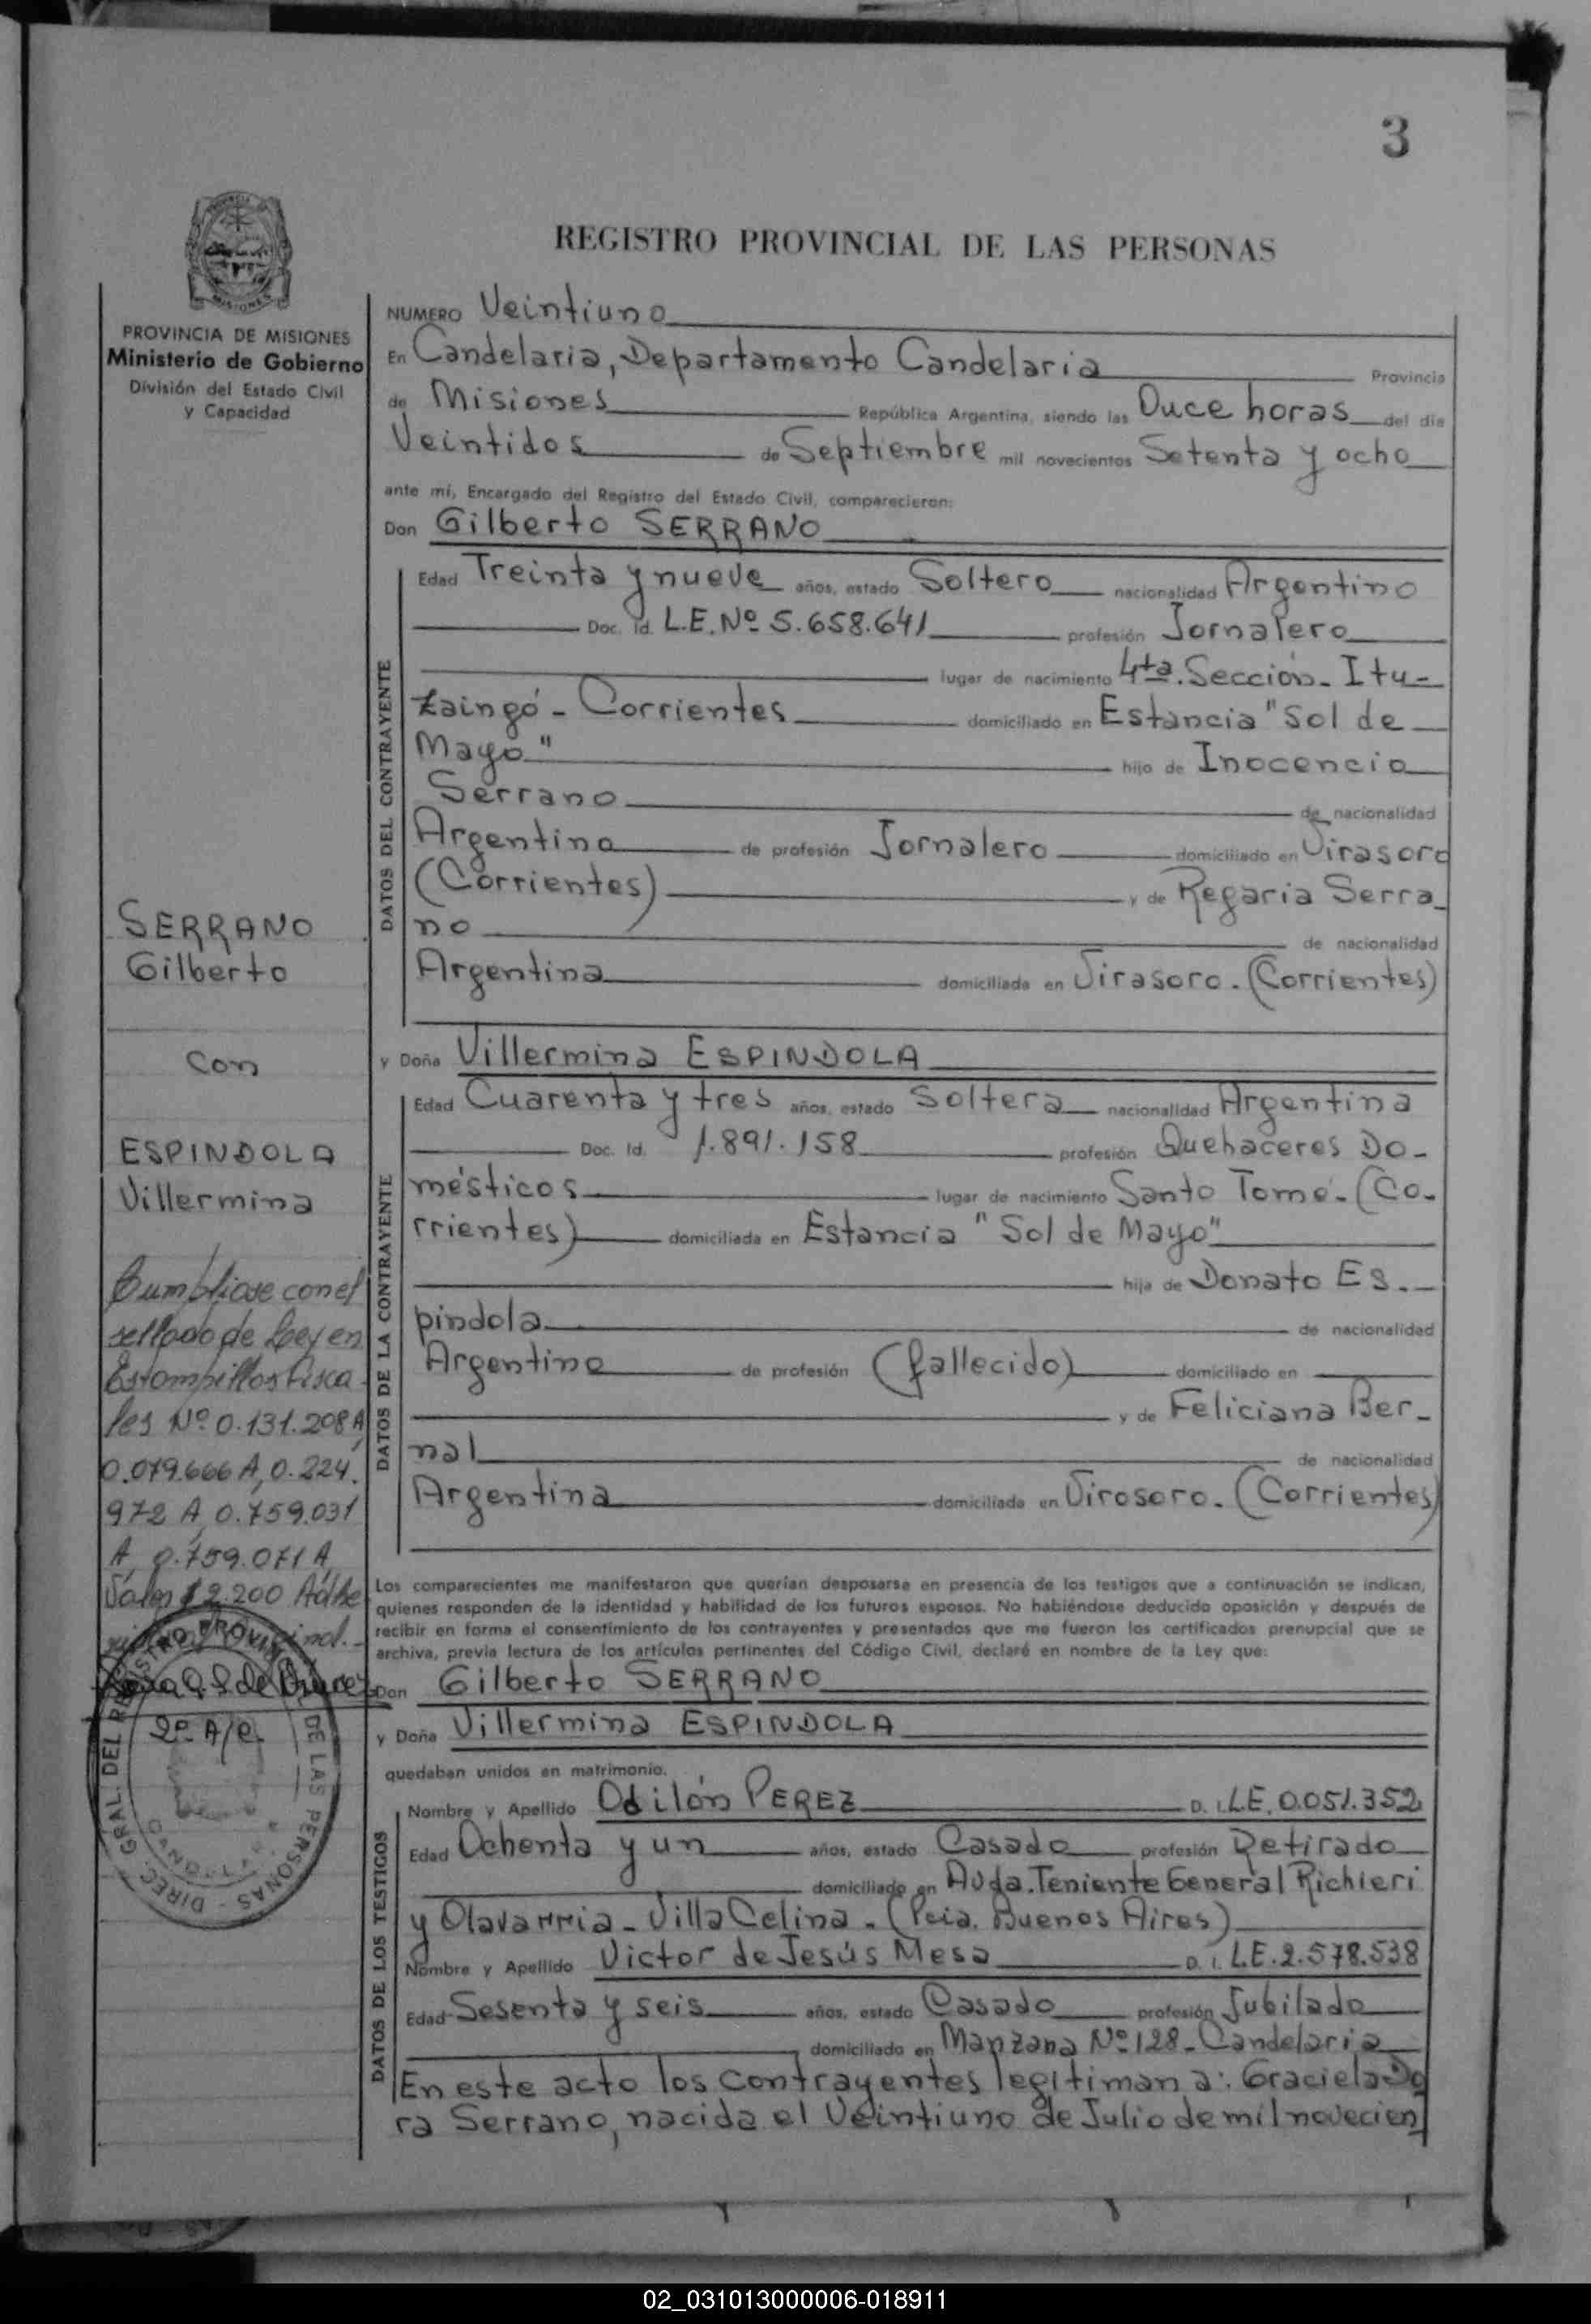 3
REGISTRO PROVINCIAL DE LAS PERSONAS
MISIONES
PROVINCIA DE MISIONES
Ministerio de Gobierno
División del Estado Civil
y Capacidad
NUMERO Veintiuno
En Candelaria, Departamento Candelaria Provincia
de Misiones República Argentina, siendo las Duce horas del día
Veintidos de Septiembre mil novecientos Setenta y ocho
ante mí, Encargado del Registro del Estado Civil, comparecieron:
Don Gilberto SERRANO
DATOS DEL CONTRAYENTE
Edad Treinta y nueve años, estado Soltero nacionalidad Argentino
Doc. Id. L.E. Nº 5.658.641 profesión Jornalero
lugar de nacimiento 4ta. Sección - Itu-
zaingó - Corrientes domiciliado en Estancia "Sol de
Mayo" hijo de Inocencio
Serrano de nacionalidad
Argentino de profesión Jornalero domiciliado en Virasoro
(Corrientes) y de Regaria Serra-
no de nacionalidad
Argentina domiciliada en Virasoro. (Corrientes)
y Doña Villermina ESPINDOLA
DATOS DE LA CONTRAYENTE
Edad Cuarenta y tres años, estado Soltera nacionalidad Argentina
Doc. Id. 1.891.158 profesión Quehaceres Do-
mésticos lugar de nacimiento Santo Tomé - (Co-
rrientes) domiciliada en Estancia "Sol de Mayo"
hija de Donato Es-
pindola de nacionalidad
Argentino de profesión (fallecido) domiciliado en
y de Feliciana Ber-
nal de nacionalidad
Argentina domiciliada en Virosoro. (Corrientes)
Los comparecientes me manifestaron que querían desposarse en presencia de los testigos que a continuación se indican,
quienes responden de la identidad y habilidad de los futuros esposos. No habiéndose deducido oposición y después de
recibir en forma el consentimiento de los contrayentes y presentados que me fueron los certificados prenupcial que se
archiva, previa lectura de los artículos pertinentes del Código Civil, declaré en nombre de la Ley que:
Don Gilberto SERRANO
y Doña Villermina ESPINDOLA
quedaban unidos en matrimonio.
DATOS DE LOS TESTIGOS
Nombre y Apellido Odilón PEREZ D. I. L.E. 0.051.352
Edad Ochenta y un años, estado Casado profesión Retirado
domiciliado en Avda. Teniente General Richieri
y Olavarria - Villa Celina. (Pcia. Buenos Aires)
Nombre y Apellido Victor de Jesús Mesa D. I. L.E. 2.578.538
Edad Sesenta y seis años, estado Casado profesión Jubilado
domiciliado en Manzana Nº 128 - Candelaria
En este acto los contrayentes legitiman a: Graciela Do
ra Serrano, nacida el Veintiuno de Julio de mil novecien
SERRANO
Gilberto
con
ESPINDOLA
Villermina
Cumpliose con el
sellado de Ley en
Estampillas fisca-
les Nº 0.131.208 A,
0.079.666 A, 0.224.
972 A, 0.759.031
A, 0.759.071 A
Valor $2.200 Adhe
2º A/C.
DIREC. GRAL. DEL REGISTRO PROVINCIAL DE LAS PERSONAS
02_031013000006-018911